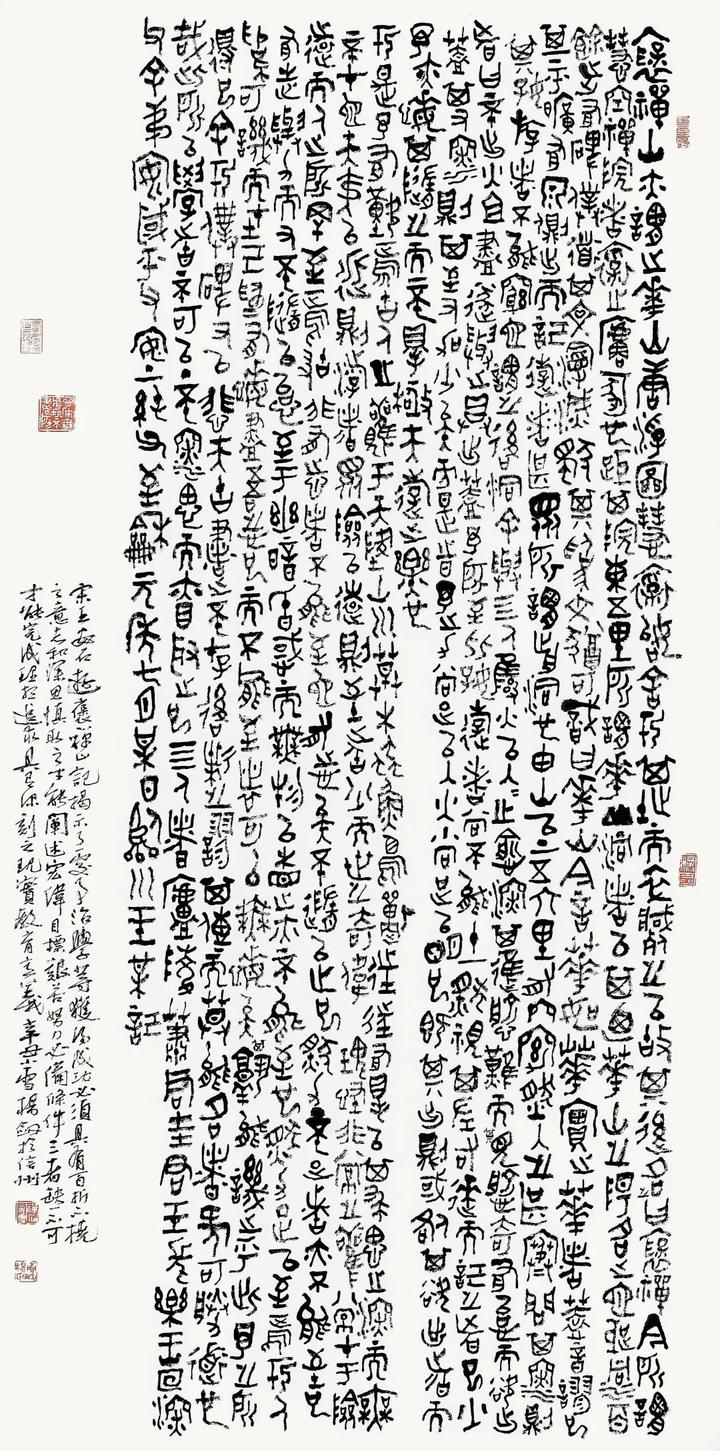 褒禪山亦謂之華山唐浮圖慧褒始舍於其址而卒葬之以故其後名曰褒禪今所謂
慧空禪院者褒之廬冢也距其院東五里所謂華山洞者以其迺華山之陽名之也距洞百
餘步有碑仆道其文漫滅獨其為文猶可識曰花山今言華如華實之華者蓋音謬也
其下平曠有泉側出而記遊者甚眾所謂前洞也由山以上五六里有穴窈然入之甚寒問其深則
其好遊者不能窮也謂之後洞余與四人擁火以入入之愈深其進愈難而見愈奇有怠而欲出
者曰不出火且盡遂與之俱出蓋予所至比好遊者尚不能十一然視其左右來而記之者已少
蓋其又深則其至又加少矣方是時予之力尚足以入火尚足以明也既其出則或咎其欲出者而
予亦悔其隨之而不得極夫遊之樂也
於是予有歎焉古人之觀於天地山川草木蟲魚鳥獸往往有得以其求思之深而無
不在也夫夷以近則遊者眾險以遠則至者少而世之奇偉瑰怪非常之觀常在於險
遠而人之所罕至焉故非有志者不能至也有志矣不隨以止也然力不足者亦不能至也
有志與力而又不隨以怠至於幽暗昏惑而無物以相之亦不能至也然力足以至焉於人
為可譏而在己為有悔盡吾志也而不能至者可以無悔矣其孰能譏之乎此予之所
得也余於仆碑又以悲夫古書之不存後世之謬其傳而莫能名者何可勝道也
哉此所以學者不可以不深思而慎取之也四人者廬陵蕭君圭君玉長樂王回深
父余弟安國平父安上純父至和元年七月某日臨川王某記
宋王安石遊褒禪山記揭示了治學等成功必須具有百折不撓
之意志和深思慎取之才能闡述宏偉目標艱苦努力必備條件三者缺一不可
才能完成理想追求具有深刻之現實教育意義辛丑雪楊於信州